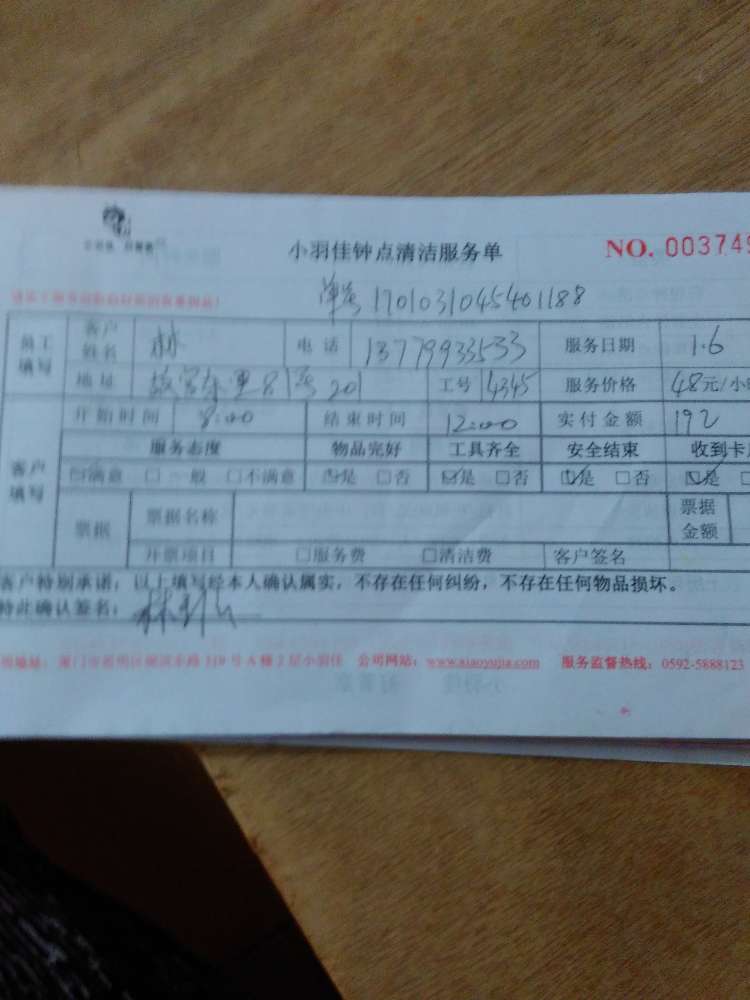 小羽佳钟点清洁服务单 NO. 003749
单号 1701031045401188
员工填写 客户姓名 林 电话 13779933533 服务日期 1.6
地址 故宫东里81号201 工号 14345 服务价格 48元/小
客户填写 开始时间 8:00 结束时间 12:00 实付金额 192
服务态度 物品完好 工具齐全 安全结束 收到卡
☑满意 □一般 □不满意 ☑是 □否 ☑是 □否 ☑是 □否 ☑是
票据 票据名称 票据金额
开票项目 □服务费 □清洁费 客户签名
客户特别承诺：以上填写经本人确认属实，不存在任何纠纷，不存在任何物品损坏。
特此确认签名：林
公司网站：www.xiaoyujia.com 服务监督热线：0592-5888123